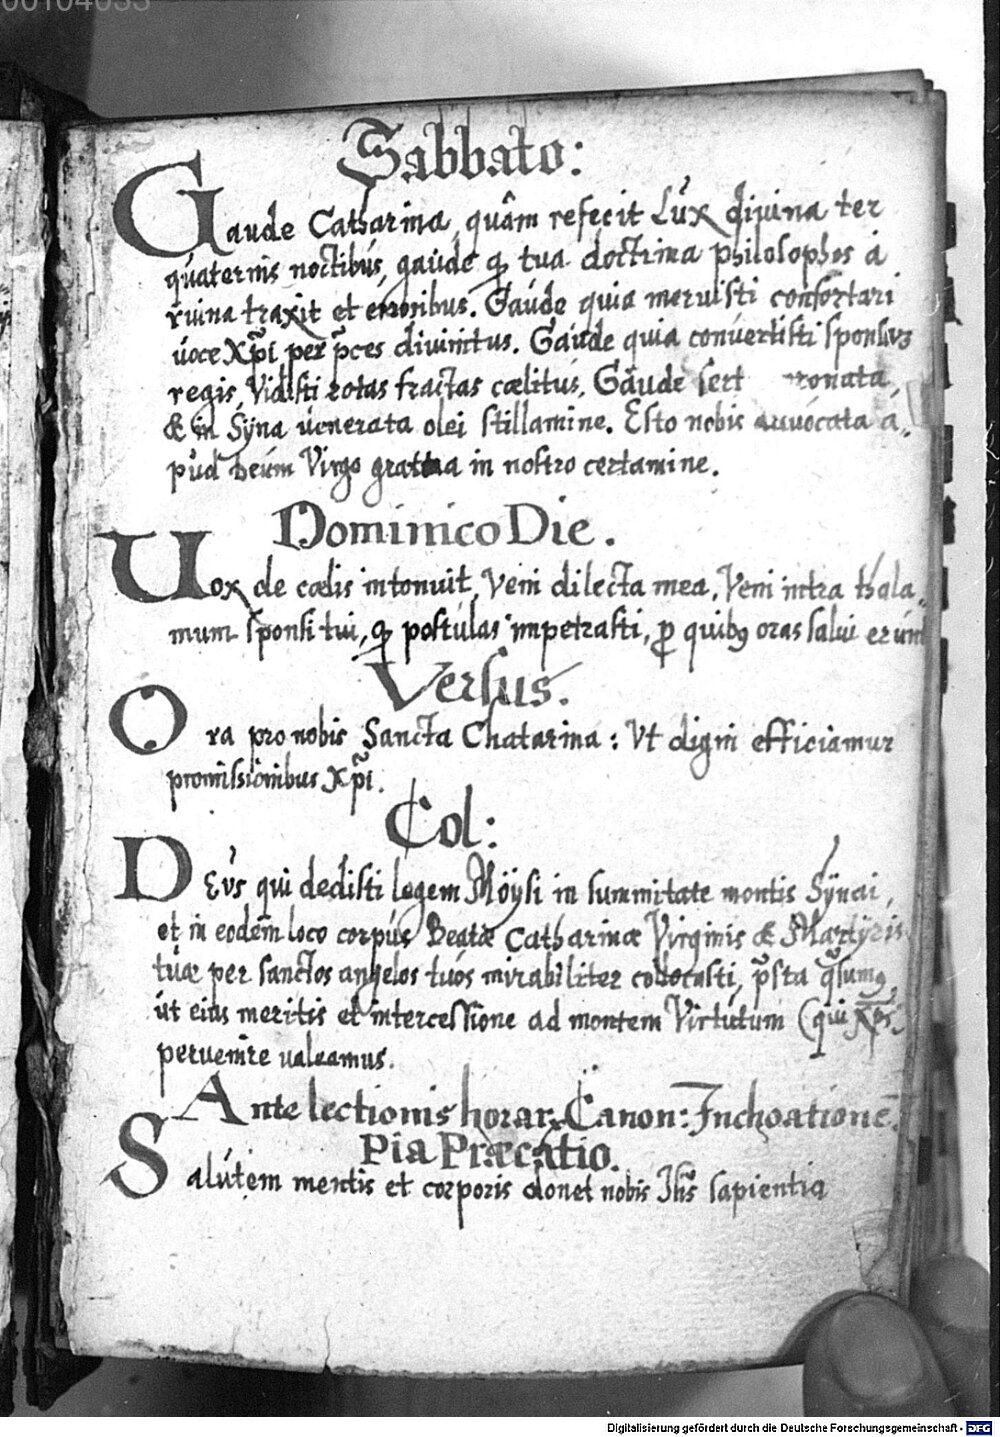 00104033
Sabbato:
Gaude Catharina, quâm refecit Lux divina ter
quaternis noctibus, gaude q̃ tua doctrina Philosophos á
ruina traxit et erroribus. Gaude quia meruisti confortari
uoce Xp̃i per p̃ces divinitus. Gaude quia convertisti sponsus
regis, Vidisti rotas fractas cælitus, Gaude sert ronata,
& in Syna uenerata olei stillamine. Esto nobis advocata á,
pud Deum Virgo gratiosa in nostro certamine.
Dominico Die.
Uox de cælis intonuit, Veni dilecta mea, Veni intra thala,
mum sponsi tui, q̃ postulas impetrasti, ꝓ quibꝯ oras salui erunt
Versus.
Ora pro nobis Sancta Chatarina: Vt digni efficiamur
promissionibus Xp̃i.
Col:
DEVS qui dedisti legem Möysi in summitate montis Sÿnai,
et in eodem loco corpus Beatæ Catharinæ Virginis & Martyris
tuæ per sanctos angelos tuos mirabiliter collocasti, p̃sta q̃sumꝯ,
ut eius meritis et intercessione ad montem Virtutum (qui Xp̃s)
peruenire ualeamus.
Ante lectionis horar: Canon: Inchoatione.
Pia Præcatio.
Salutem mentis et corporis donet nobis Ihs̃ sapientia
Digitalisierung gefördert durch die Deutsche Forschungsgemeinschaft - DFG